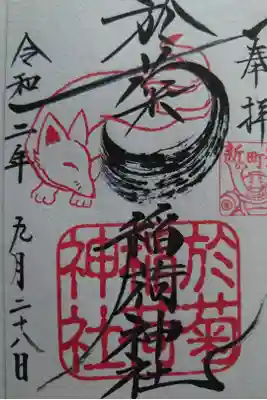 奉拝
新町
於菊
稲荷神社
於菊
稲荷
神社
令和二年 九月二十八日